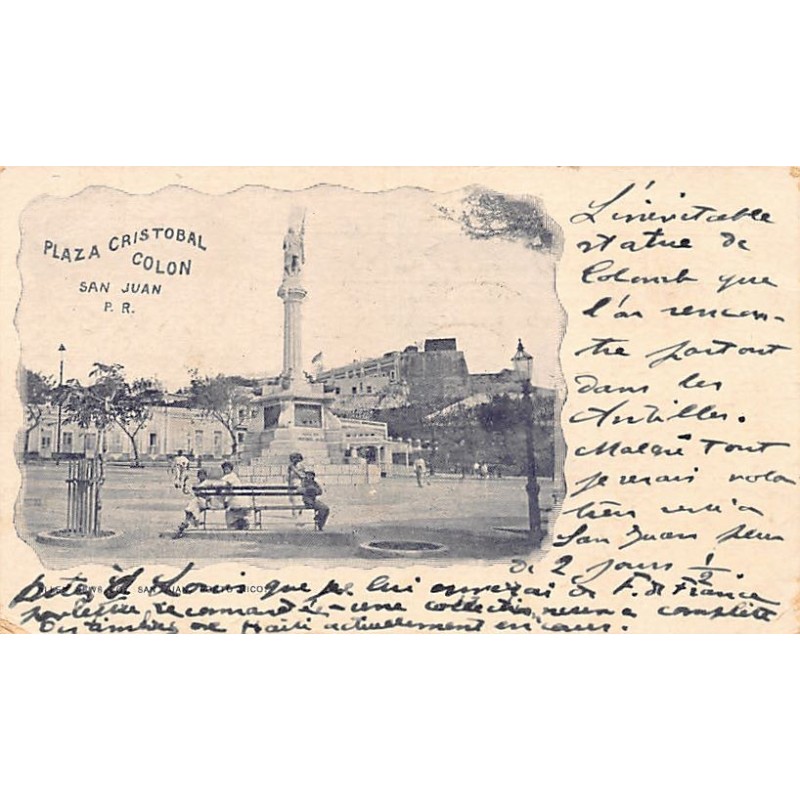 PLAZA CRISTOBAL
COLON
SAN JUAN
P. R.
L'inévitable
statue de
Colomb que
l'on rencon-
tre partout
dans les
Antilles.
Malgré tout
je serais
très
San Juan pour
de 2 jours 1/2
à Louis que je lui enverrai de F. de France
recommandée une collection complète
de timbres de Haïti actuellement en cours.
SAN JUAN